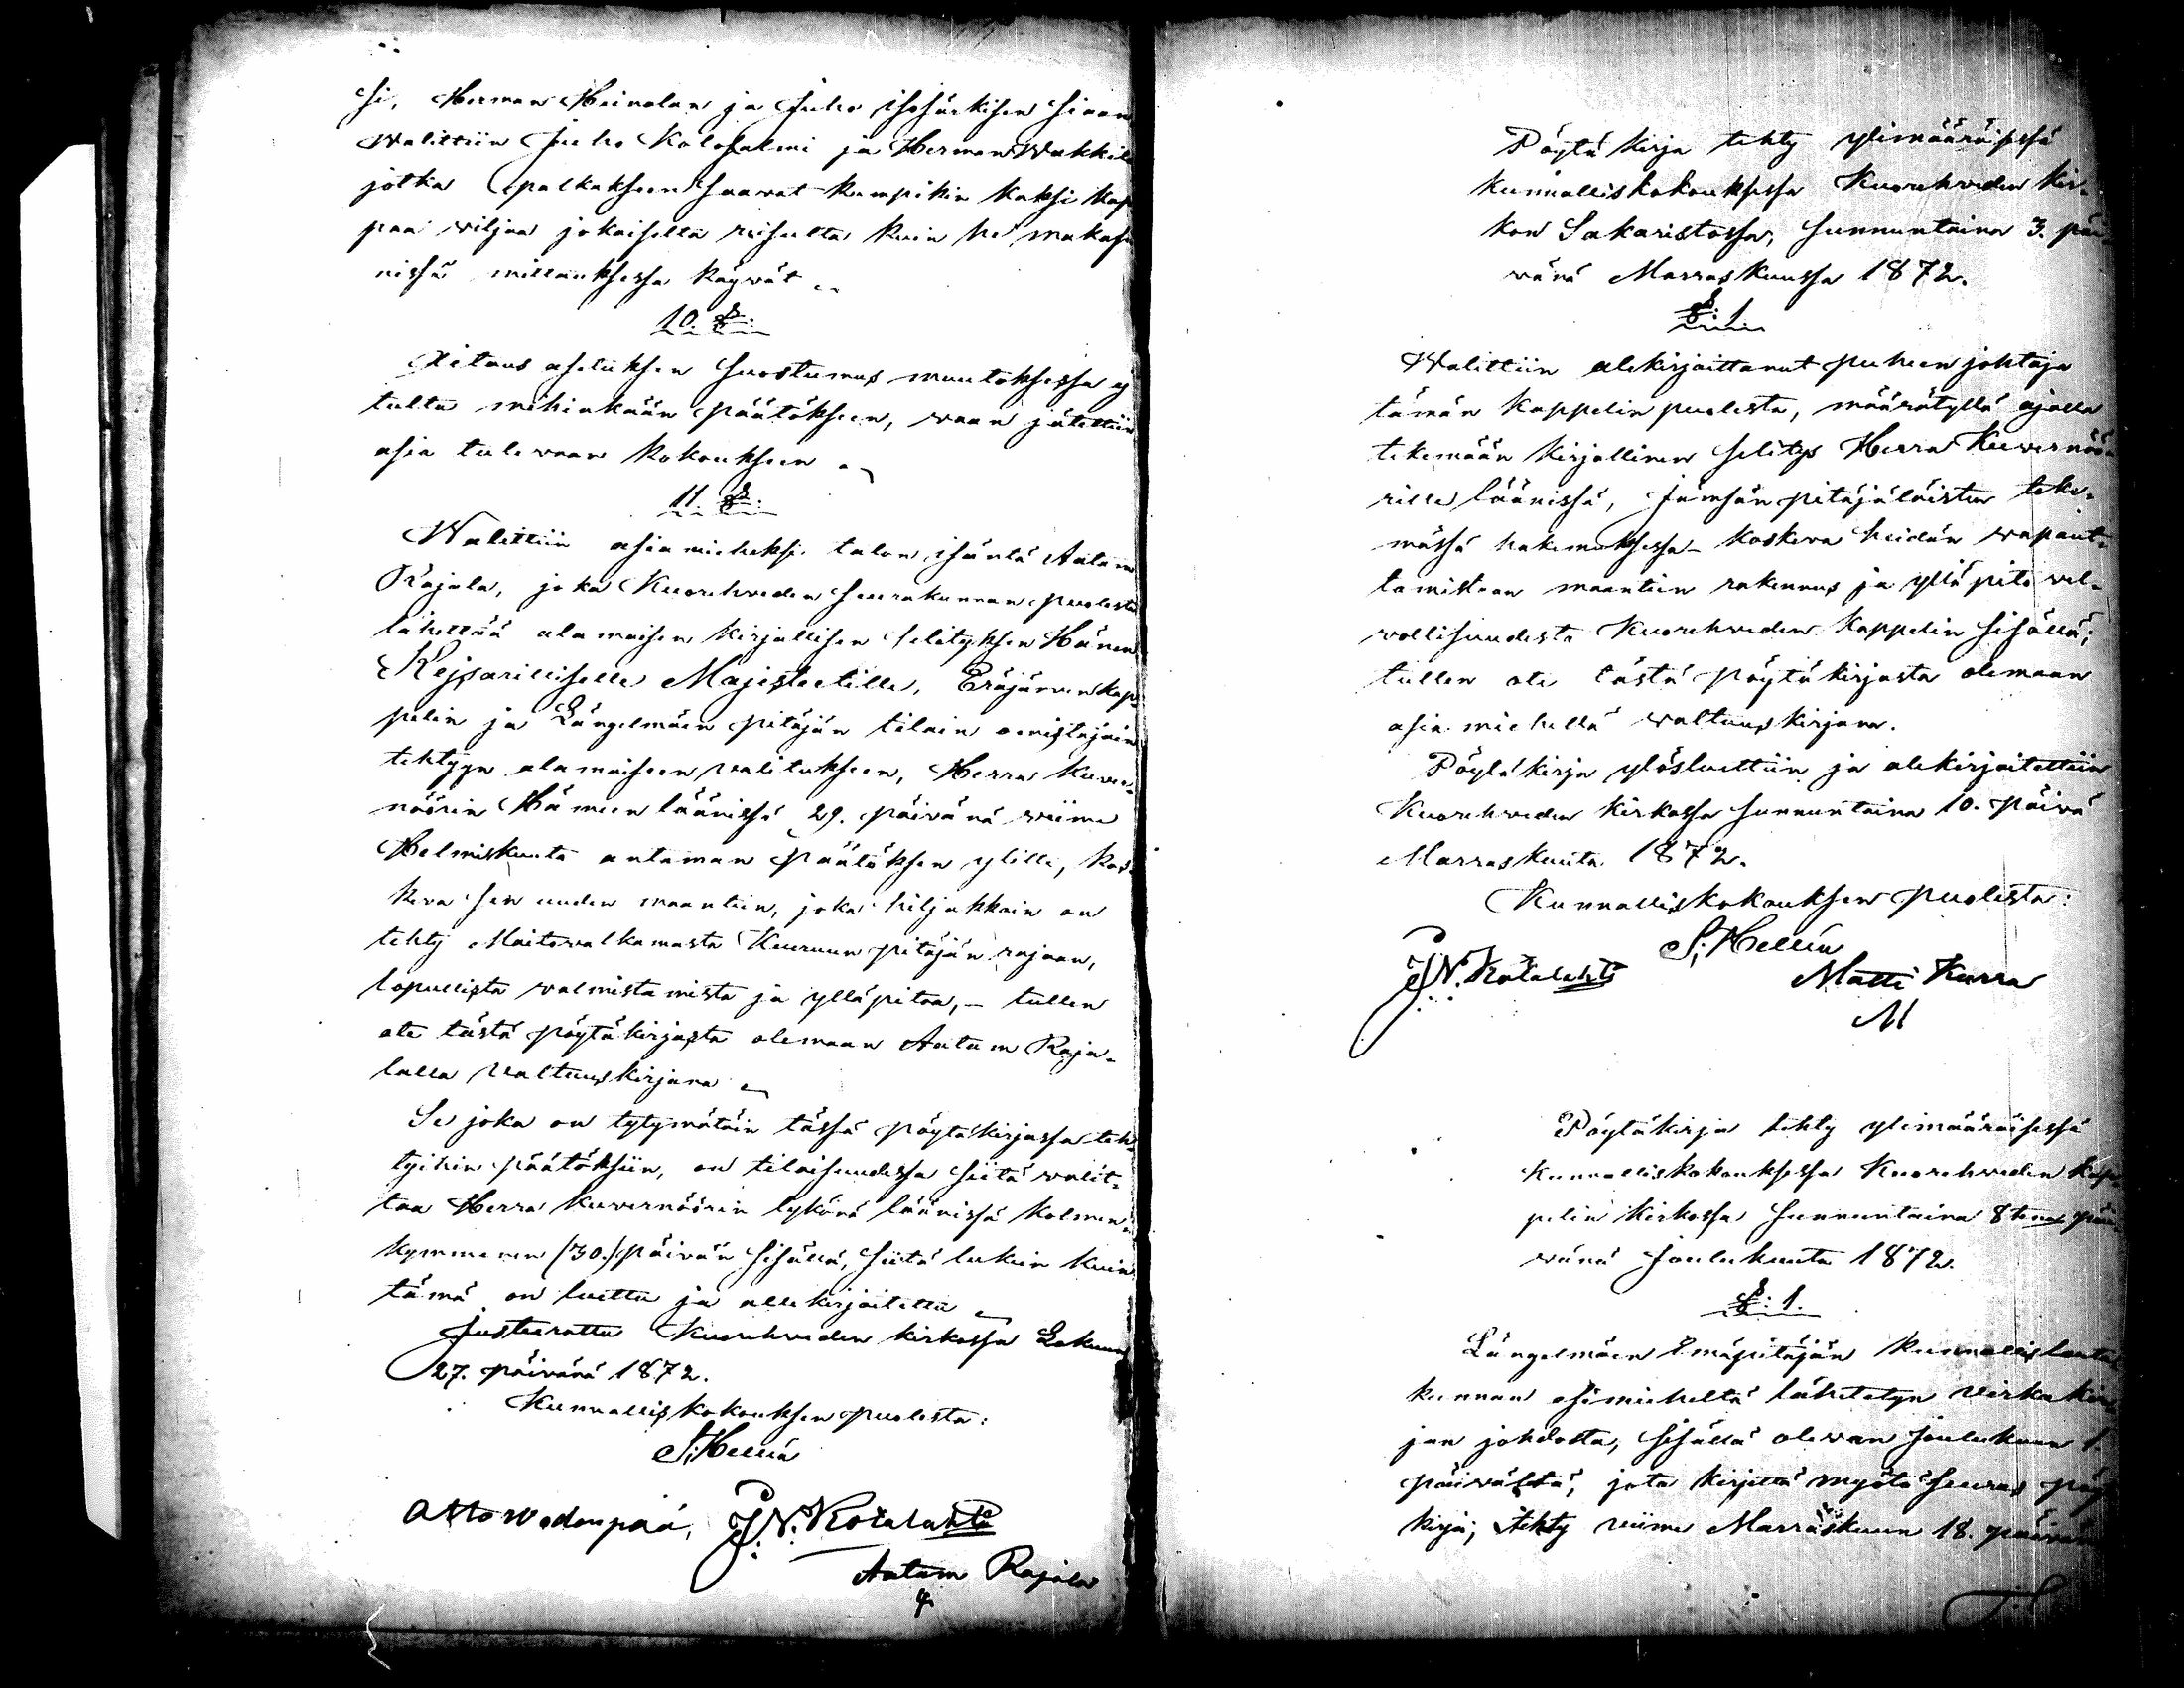 si, Herman Heinolan ja Juho isosärkisen siaan
Walittiin Juho Kalosalmi ja Herman Wakkil
jotka palkakseen saawat kumpikin kaksi kap
paa wiljaa jokaisella reisulta kuin he makasi
nissä mittauksessa käywät
10. §:
asetuksen suostumus muutoksessa ej
tultu mihinkään päätökseen, waan jätettiin
asia tulewaan kokoukseen
11. §:
Walittiin asiamieheksi talon isäntä Aatam
Rajala, joka Kuorehweden seurakunnan puolesta
lähettää alamaisen kirjallisen selityksen Hänen
Kejsarilliselle Majesteetille, Eräjärwen kap-
pelin ja Längelmäen pitäjän tilain omistajain
tehtyyn alamaiseen walitukseen, Herra Kuwer-
nöörin Hämeen läänissä 29. päiwänä wiime
Helmikuuta antaman päätöksen ylille, kos-
kewa sen uuden maantien, joka hiljakkoin on
tehty Maitowalkamasta Keuruun pitäjän rajaan,
lopullista walmistamista ja ylläpitoa, - tullen
ote tästä pöytäkirjasta olemaan Aatam Raja-
lalla Waltuuskirjana
Se joka on tytymätöin tässä pöytäkirjassa teh-
tyihin päätöksiin, on tilaisuudessa siitä walit-
taa Herra Kuwernöörin tykönä läänissä kolmen-
kymmenen (30.) päiwän sisällä, siitä lukein kuin
tämä on luettu ja allekirjoitettu
Justeerattu Kuorehweden kirkossa Lokuun
27. päiwänä 1872.
Kunnalliskokouksen puolesta:
S. Hellén
Atto Wedenpää, J.N. Kotalahti
Aatam Rajala
Pöytäkirja tehty ylimääräisessä
kunnalliskokouksessa Kuorehweden kir-
kon Sakaristossa, sunnuntaina 3. päi-
wänä Marraskuussa 1872.
§: 1.
Walittiin alekirjoittanut puheenjohtaja
tämän kappelin puolesta, määrätyllä ajalla
tekemään kirjallinen selitys Herra Kuwernöö-
rille läänissä, Jämsän pitäjäläisten teke-
mässä hakemuksessa koskewa heidän wapaut-
tamistaan maantien rakennus ja ylläpito wel-
wollisuudesta Kuorehweden kappelin sisällä;
tullen ote tästä pöytäkirjasta olemaan
asia miehellä waltuuskirjana.
Pöytäkirja ylösluettiin ja alekirjoitettiin
Kuorehweden kirkossa sunnuntaina 10. päiwä
Marraskuuta 1872.
Kunnalliskokouksen puolesta:
S. Hellén
J.N. Kotalahti Matti Kurra
M
Pöytäkirja tehty ylimääräisessä
kunnalliskokouksessa Kuorehweden kap-
pelin kirkossa sunnuntaina 8tena päi-
wänä Joulukuuta 1872.
§: 1.
Längelmäen Emäpitäjän kunnallislauta
kunnan esimieheltä lähetetyn wirkakir
jan johdosta, sisällä olewan Joulukuun 1.
päiwältä, jota kirjettä myötä seuras pöy
kirja, tehty wiime Marraskuun 18. päiwän